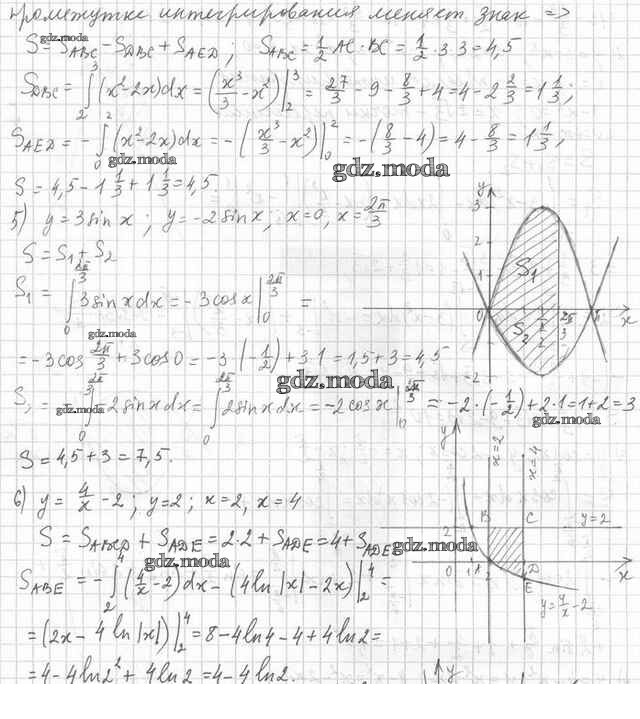 промежутке интегрирования меняет знак =>
S = S_ABC - S_DBC + S_AED ; S_ABC = 1/2 AC · BC = 1/2 · 3 · 3 = 4,5
S_DBC = ∫₂³ (x² - 2x)dx = (x³/3 - x²)|₂³ = 27/3 - 9 - 8/3 + 4 = 4 - 2 2/3 = 1 1/3 ;
S_AED = - ∫₀² (x² - 2x)dx = - (x³/3 - x²)|₀² = - (8/3 - 4) = 4 - 8/3 = 1 1/3 ;
gdz.moda
gdz.moda
gdz.moda
S = 4,5 - 1 1/3 + 1 1/3 = 4,5.
5) y = 3 sin x ; y = -2 sin x ; x = 0, x = 2π/3
S = S₁ + S₂
S₁ = ∫₀^(2π/3) 3 sin x dx = -3 cos x |₀^(2π/3) =
gdz.moda
= -3 cos 2π/3 + 3 cos 0 = -3 · (-1/2) + 3 · 1 = 1,5 + 3 = 4,5
gdz.moda
∫₀^(2π/3) -2 sin x dx = ∫₀^(2π/3) 2 sin x dx = -2 cos x |₀^(2π/3) = -2 · (-1/2) + 2 · 1 = 1 + 2 = 3
gdz.moda
gdz.moda
S = 4,5 + 3 = 7,5.
y
3
2
1
S₁
0
S₂
π/2
2π/3
π
x
-2
6) y = 4/x - 2 ; y = 2 ; x = 2, x = 4
S = S_ABCD + S_ADE = 2 · 2 + S_ADE = 4 + S_ADE
gdz.moda
gdz.moda
S_ABE = - ∫₂⁴ (4/x - 2) dx - (4 ln |x| - 2x)|₂⁴ =
= (2x - 4 ln |x|)|₂⁴ = 8 - 4 ln 4 - 4 + 4 ln 2 =
= 4 - 4 ln 2² + 4 ln 2 = 4 - 4 ln 2.
y
x = 2
x = 4
B
C
y = 2
2
0
1
A
2
D
E
x
y = 4/x - 2
y